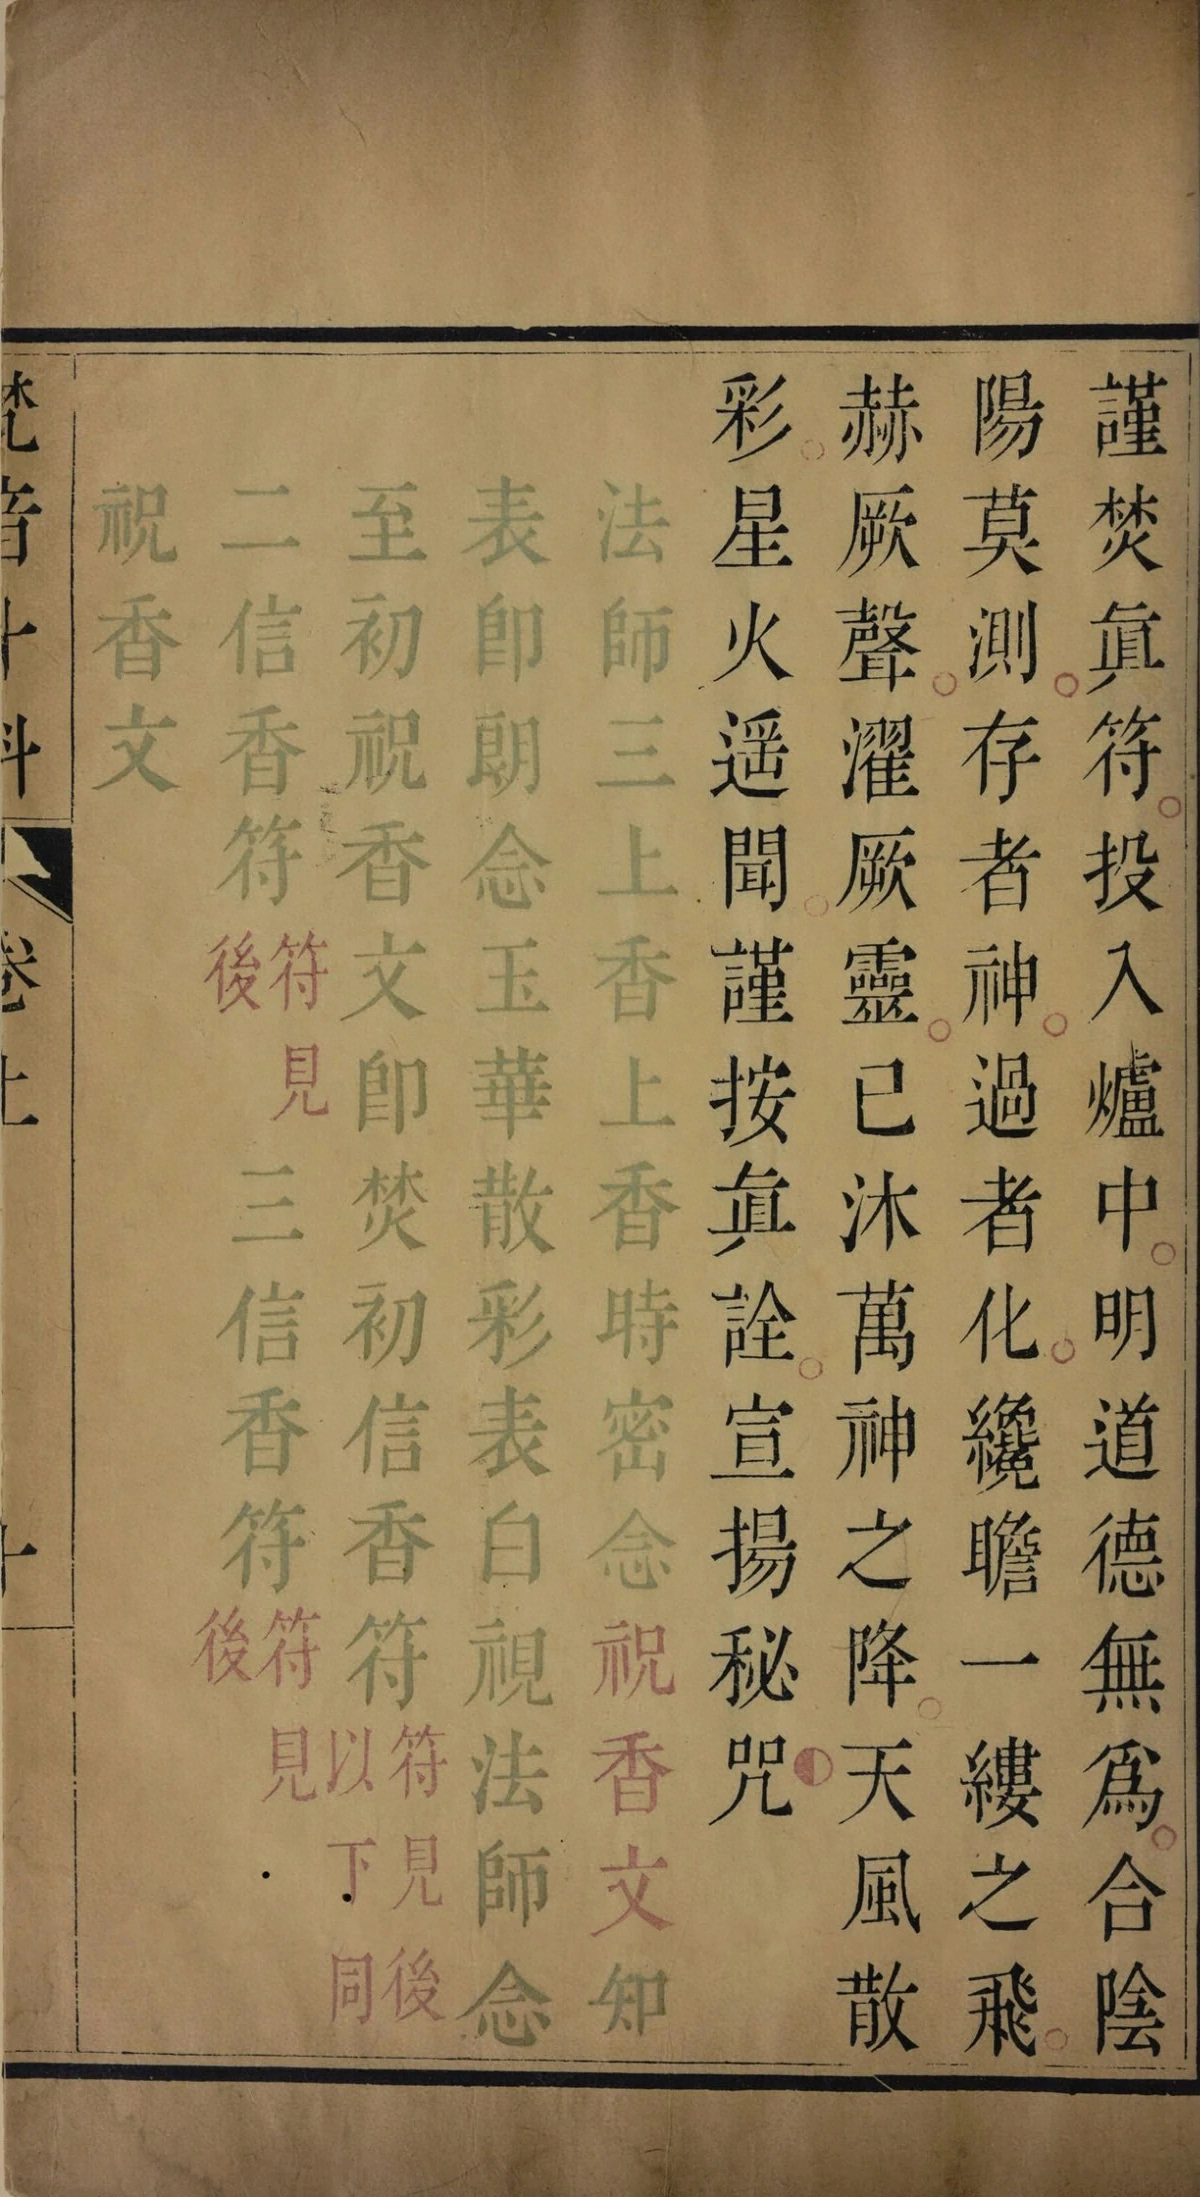 謹焚眞符投入爐中明道德無爲合陰
陽莫測存者神過者化纔瞻一縷之飛
赫厥聲濯厥靈已沐萬神之降天風散
彩星火遥聞謹按眞詮宣揚秘咒
法師三上香上香時密念祝香文知
表卽朗念玉華散彩表白視法師念
至初祝香文卽焚初信香符符見後以下同
二信香符符見後三信香符符見後
祝香文
梵音斗科
卷上